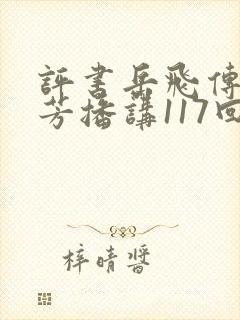 評書岳飛傳
芳播講117回
梓晴醬